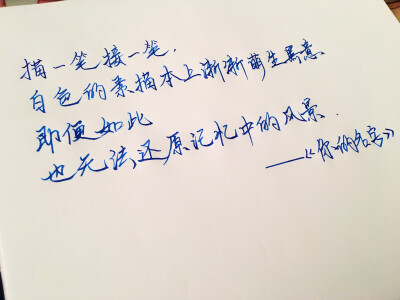 描一笔接一笔.
白色的素描本上渐渐萌生墨意.
即便如此
也无法还原记忆中的风景.
——《你的名字》